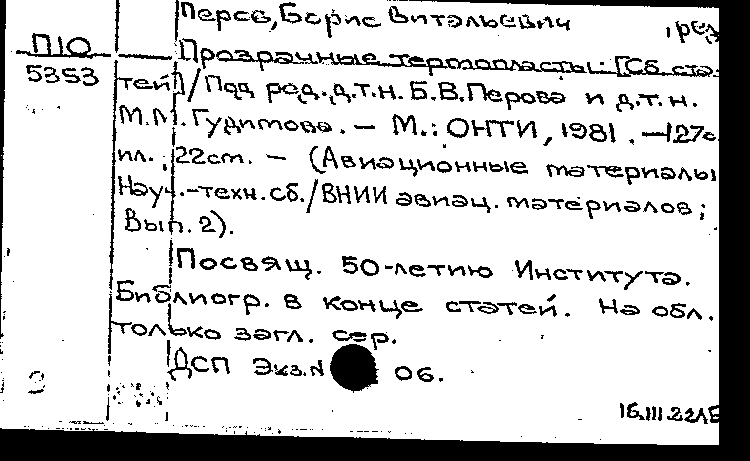 Перов, Борис Витальевич , ред
П10 Прозрачные термопласты: [Сб. ста-
5353 тей] / Под ред. д.т.н. Б.В.Перова и д.т.н.
М.М.Гудимова. — М.: ОНТИ, 1981. — 127с.
ил. ; 22cm. — (Авиационные материалы
Науч.-техн.сб./ВНИИ авиац. материалов;
Вып. 2).
Посвящ. 50-летию Института.
Библиогр. в конце статей. На обл.
только загл. сер.
ДСП Экз.N 06.
16.III.22